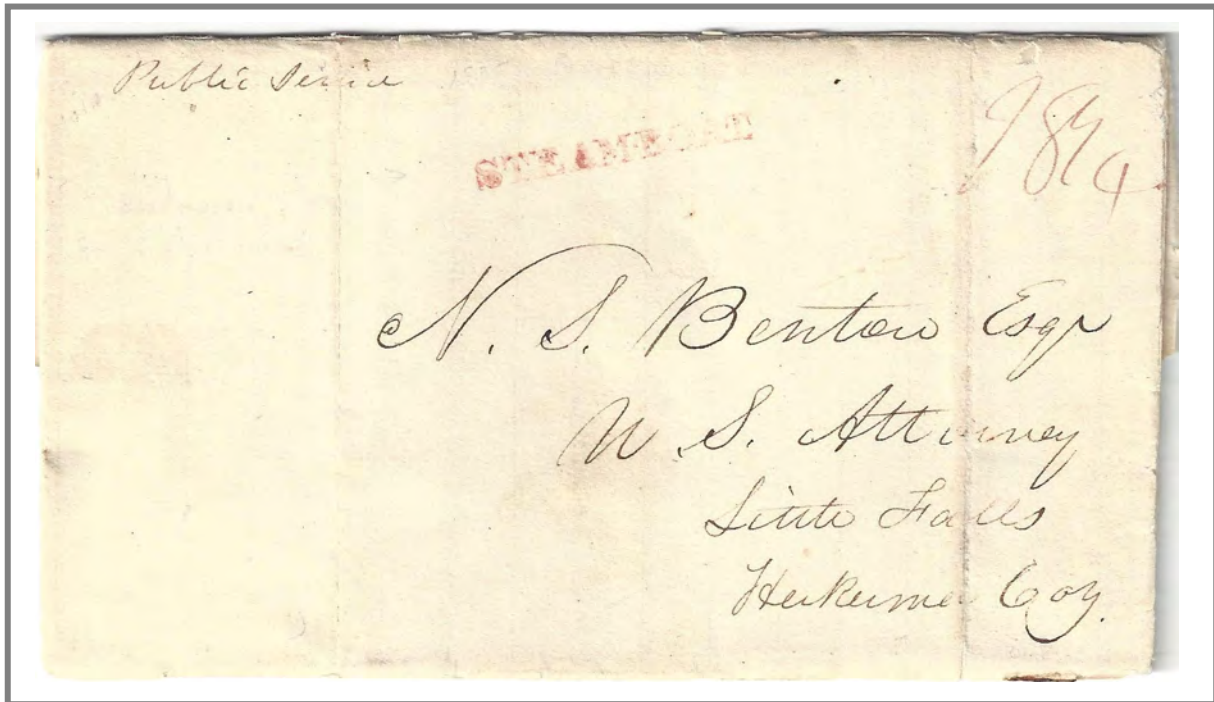 Public Service
STEAMBOAT
18¾
N. S. Benton Esqr
U. S. Attorney
Little Falls
Herkimer Coy.